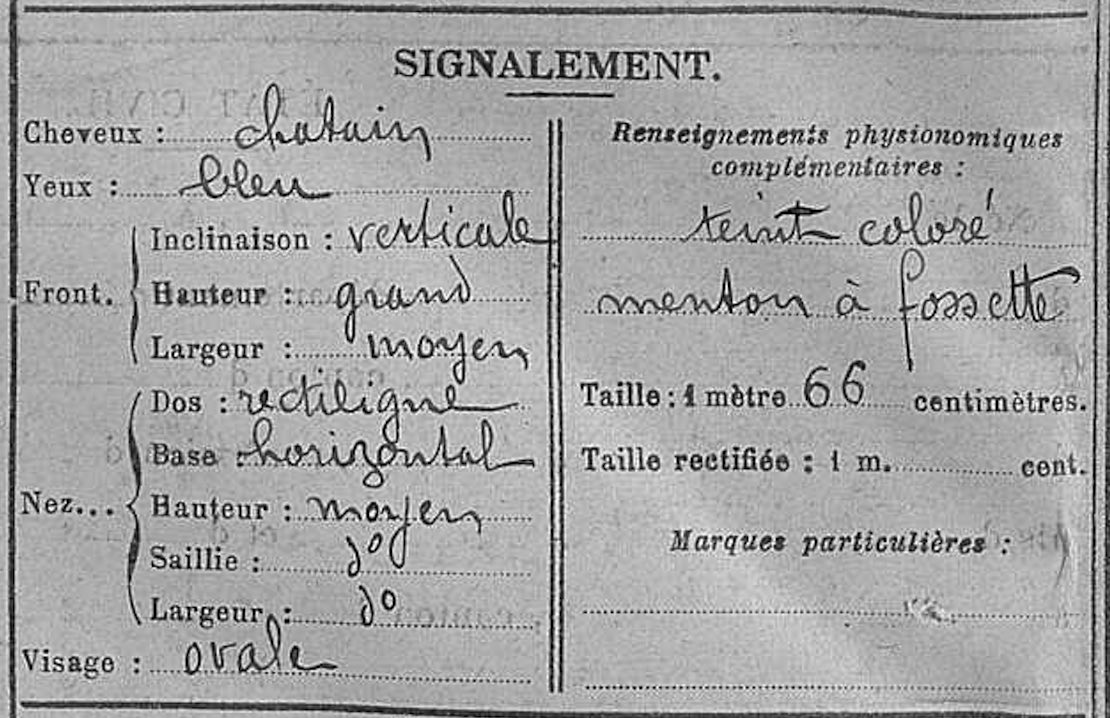 SIGNALEMENT.
Cheveux : chatain
Yeux : bleu
Front.
Inclinaison : verticale
Hauteur : grand
Largeur : moyen
Nez...
Dos : rectiligne
Base : horizontal
Hauteur : moyen
Saillie : d°
Largeur : d°
Visage : ovale
Renseignements physionomiques
complémentaires :
teint coloré
menton à fossette
Taille : 1 mètre 66 centimètres.
Taille rectifiée : 1 m. cent.
Marques particulières :